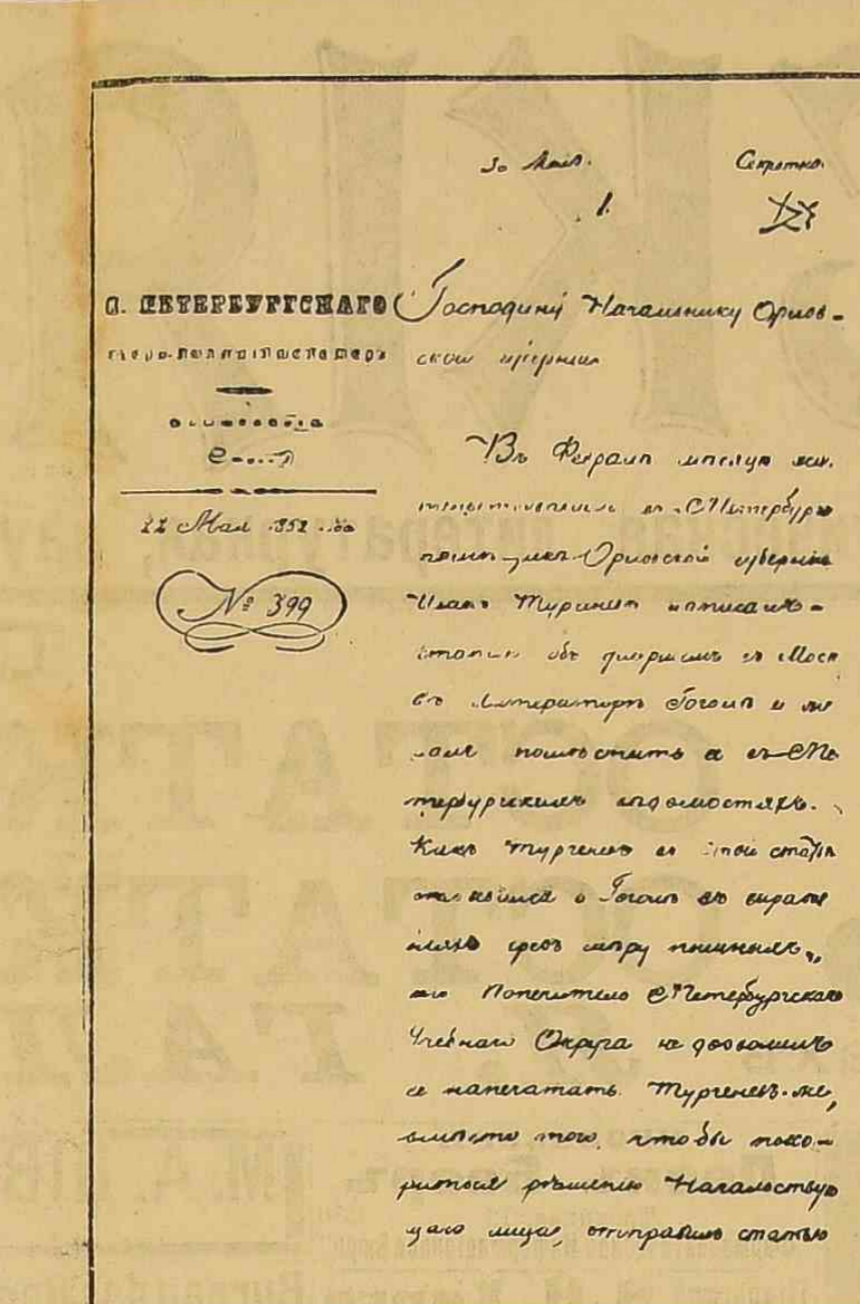 30 Мая.
Секретно.
1.
С. ПЕТЕРБУРГСКАГО
Господину Начальнику Орлов-
ской губернiи
Въ Февралѣ
въ С Петербургѣ
Орловской губернiи
Иванъ Тургеневъ написалъ
объ умершемъ въ Моск
вѣ Литераторѣ Гоголѣ и же
лалъ помѣстить ее въ С Пе
тербургскихъ вѣдомостяхъ.
Какъ Тургеневъ въ этой статьѣ
отзывался о Гоголѣ въ выраже
нiяхъ чрезъ мѣру пышныхъ,
то Попечитель С Петербургскаго
Учебнаго Округа не дозволилъ
ее напечатать. Тургеневъ-же,
вмѣсто того, чтобы поко-
риться рѣшенiю Начальствую
щаго лица, отправилъ статью
22 Мая 1852 года
№ 399